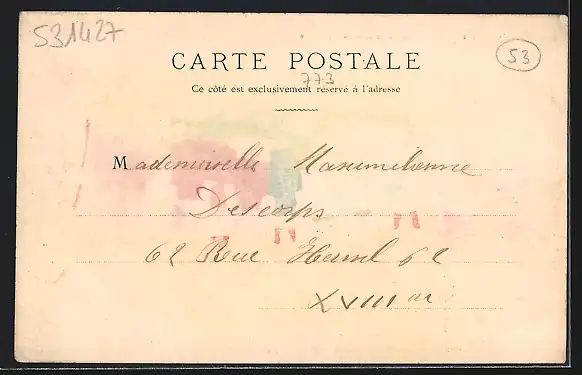 531427
53
CARTE POSTALE
773
Ce côté est exclusivement réservé à l'adresse
Mademoiselle Maximilienne
Descamps
62 Rue Hermel 62
XVIII ar